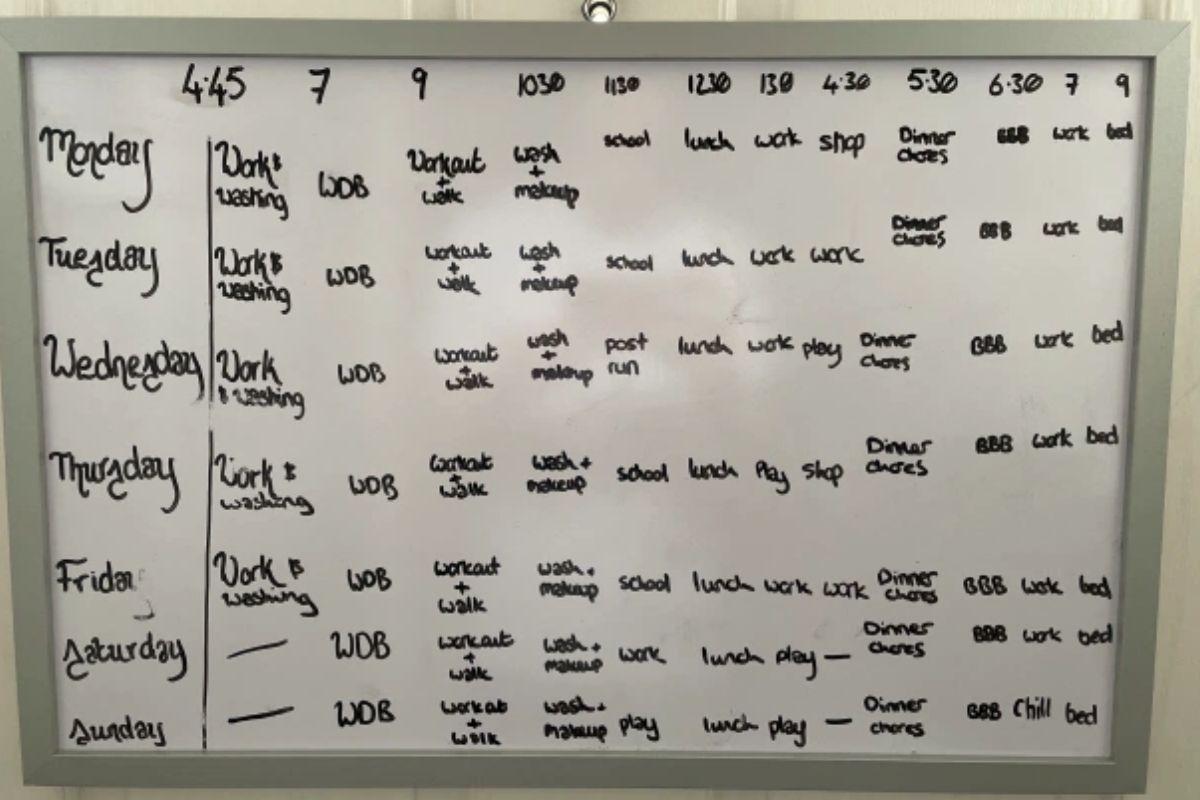 4:45 7 9 1030 1130 1230 130 4:30 5:30 6:30 7 9
Monday Work & washing WDB Workout + walk wash + makeup school lunch work shop Dinner chores BBB work bed
Tuesday Work & washing WDB workout + walk wash + makeup school lunch work work Dinner chores BBB work bed
Wednesday Work & washing WDB workout + walk wash + makeup post run lunch work play Dinner chores BBB work bed
Thursday Work & washing WDB workout + walk wash + makeup school lunch Play shop Dinner chores BBB work bed
Friday Work & washing WDB workout + walk wash + makeup school lunch work work Dinner chores BBB work bed
Saturday — WDB workout + walk wash + makeup work lunch play — Dinner chores BBB work bed
Sunday — WDB workout + walk wash + makeup play lunch play — Dinner chores BBB Chill bed